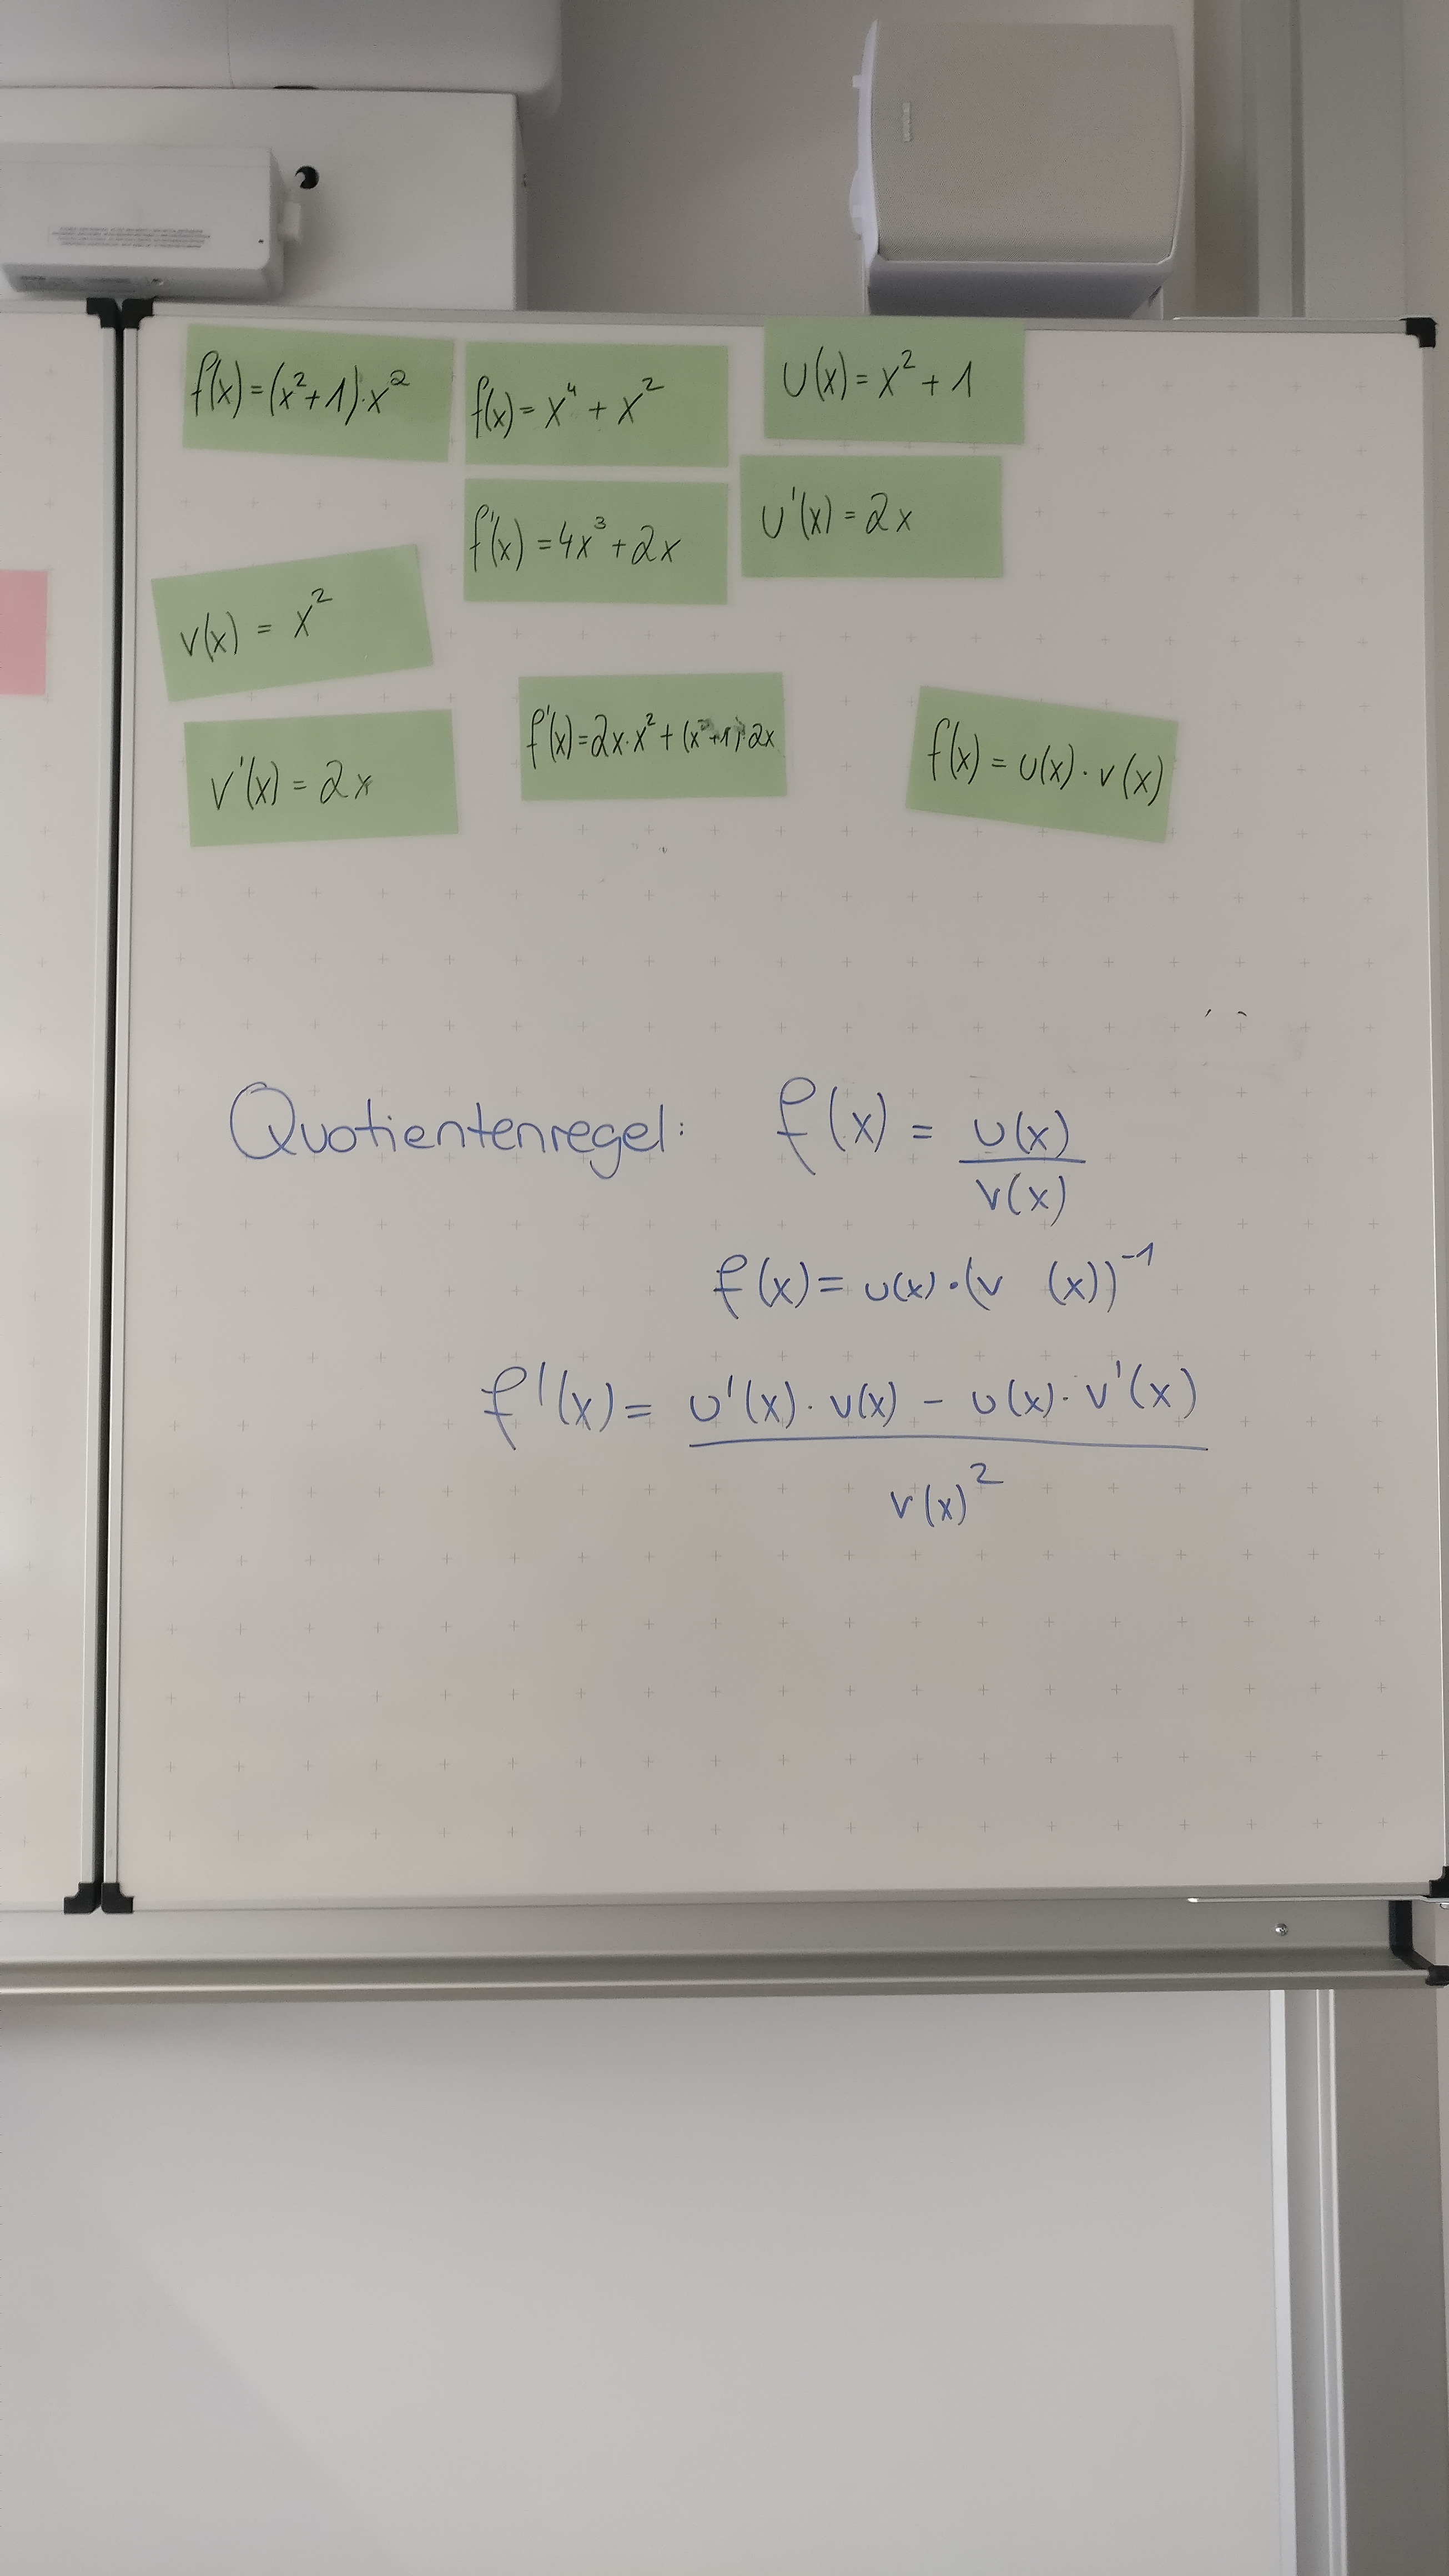 f(x)=(x²+1)·x²
f(x)= x⁴ + x²
U(x)= x² + 1
f'(x) = 4x³ + 2x
U'(x) = 2x
v(x) = x²
v'(x) = 2x
f'(x)=2x·x²+(x²+1)·2x
f(x) = u(x) · v(x)
Quotientenregel: f(x) = u(x)/v(x)
f(x) = u(x)·(v (x))⁻¹
f'(x) = u'(x) · v(x) - u(x) · v'(x)
v(x)²